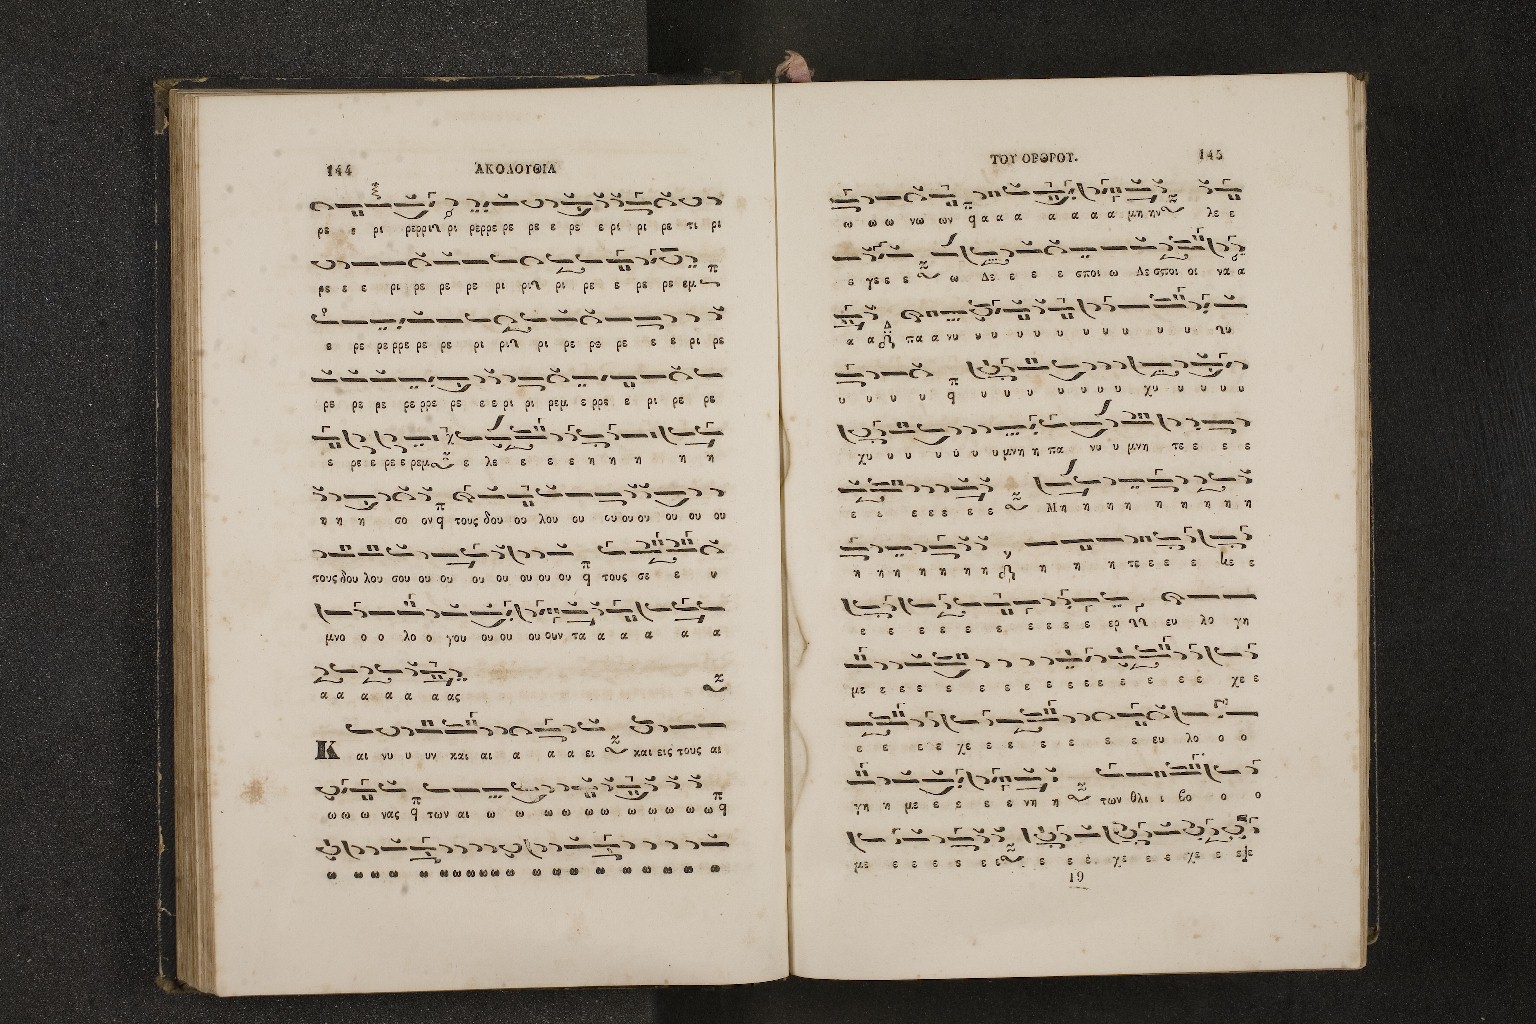 144 ἈΚΟΛΟΥΘΙΑ
ρε ε ρι ρερριλ ρι ρερρε ρε ρε ε ρε ε ρι ρι ρε τι ρι
ρε ε ε ρι ρε ρε ρε ρι ριλ ρι ρε ε ρε ρε εμ
ε ρε ρε ρρε ρε ρε ρι ριλ ρι ρε ρε ρε ε ε ρι ρε
ρε ρε ρε ρε ρρε ρε ε ε ρι ρι ρεμ ε ρρε ε ρι ρε ρε
ε ρε ε ρε ε ρεμ ε λε ε ε ε η η η η η
η η η σο ον τους δου ου λου ου ου ου ου ου ου ου
τους δου λου σου ου ου ου ου ου ου ου τους σε ε υ
μνο ο ο λο ο γου ου ου ου ουν τα α α α α α
α α α α α α ας
Και νυ υ υν και αι α α α ει και εις τους αι
ω ω ω νας των αι ω ω ω ω ω ω ω ω ω ω
ω ω ω ω ω ω ω ω ω ω ω ω ω ω ω ω ω ω ω
ΤΟΥ ΟΡΘΡΟΥ. 145
ω ω ω νω ων α α α α α α α μη ην λε ε
ε γε ε ε ω Δε ε ε ε σποι ω Δε σποι οι να α
α α πα α νυ υ υ υ υ υ υ υ υ υ υ λυ
υ υ υ υ υ υ υ υ υ υ υ χυ υ υ υ υ
χυ υ υ υ υ υ υ μνη η πα νυ υ μνη τε ε ε ε
ε ε ε ε ε ε ε Μη η η η η η η η
η η η η η η η η η η τε ε ε ε με ε
ε ε ε ε ε ε ε ε ε ε ερ ευ λο γη
με ε ε ε ε ε ε ε ε ε ε ε ε ε ε χε ε
ε ε ε ε χε ε ε ε ε ε ε ε ευ λο ο ο
γη η με ε ε ε ε νη η των θλι ι βο ο ο
με ε ε ε ε ε ε ε ε ε χε ε ε χε ε
19